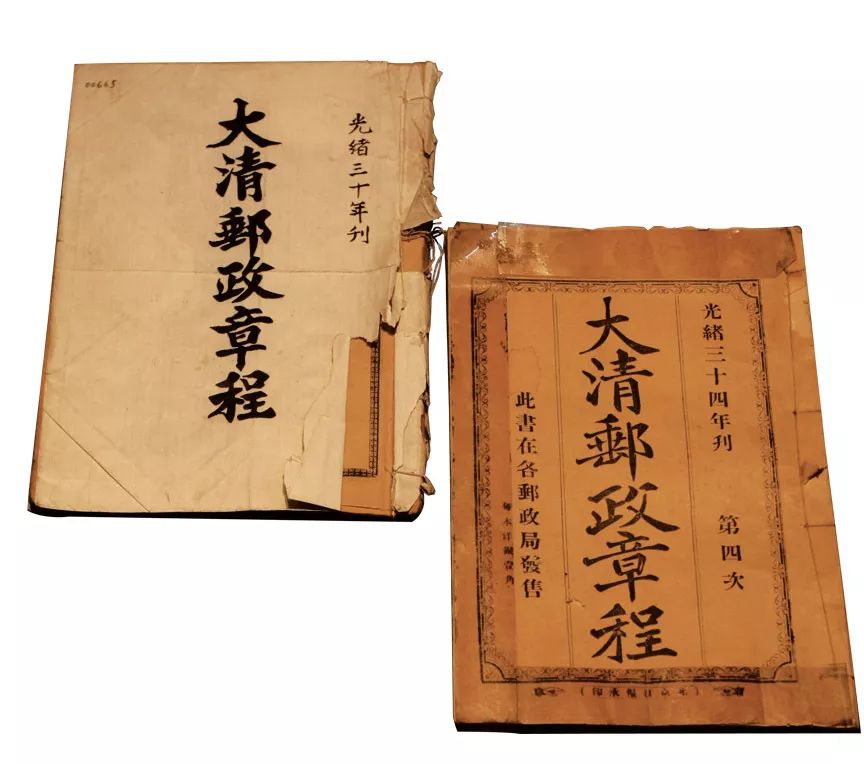 00665
光緒三十年刊
大清郵政章程
光緒三十四年刊 第四次
大清郵政章程
此書在各郵政局發售
每本洋銀壹角